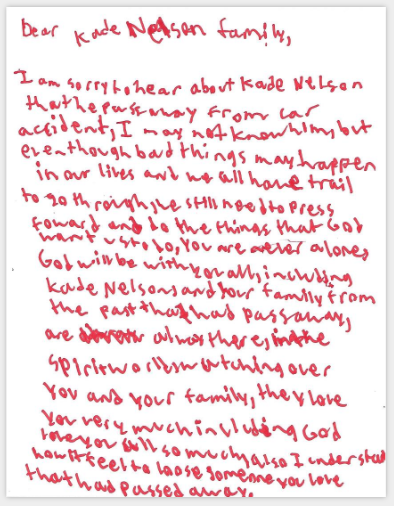 Dear Kade Nelson family,
I am sorry to hear about Kade Nelson
that he pass away from car
accident, I may not know him, but
even though bad things may happen
in our lives and we all have trail
to go through, we still need to press
foward and do the things that God
want us to do, you are never alone,
God will be with you all, including
Kade Nelsons and your family from
the past that had pass away,
are almost here, in the
spirit world watching over
you and your family, they love
you very much including God
love you all so much, also I understad
how it feel to loose someone you love
that had passed away.